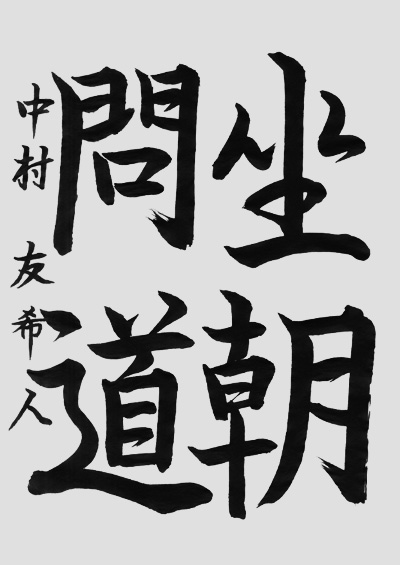 坐朝
問道
中村友希人